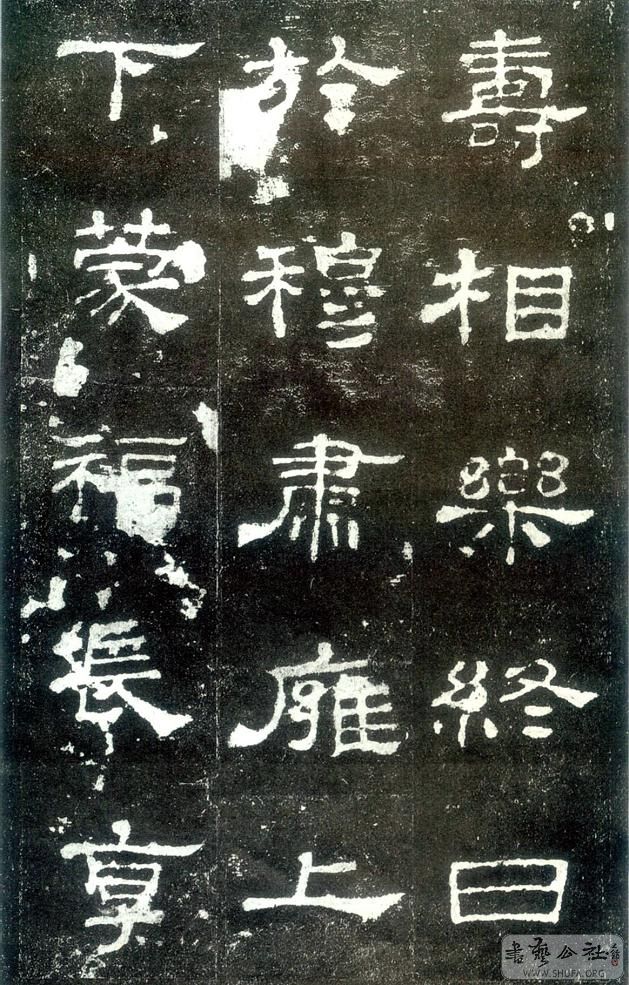 壽相樂終日
於穆肅雍上
下蒙福長享
書藝公社
WWW.SHUFA.ORG